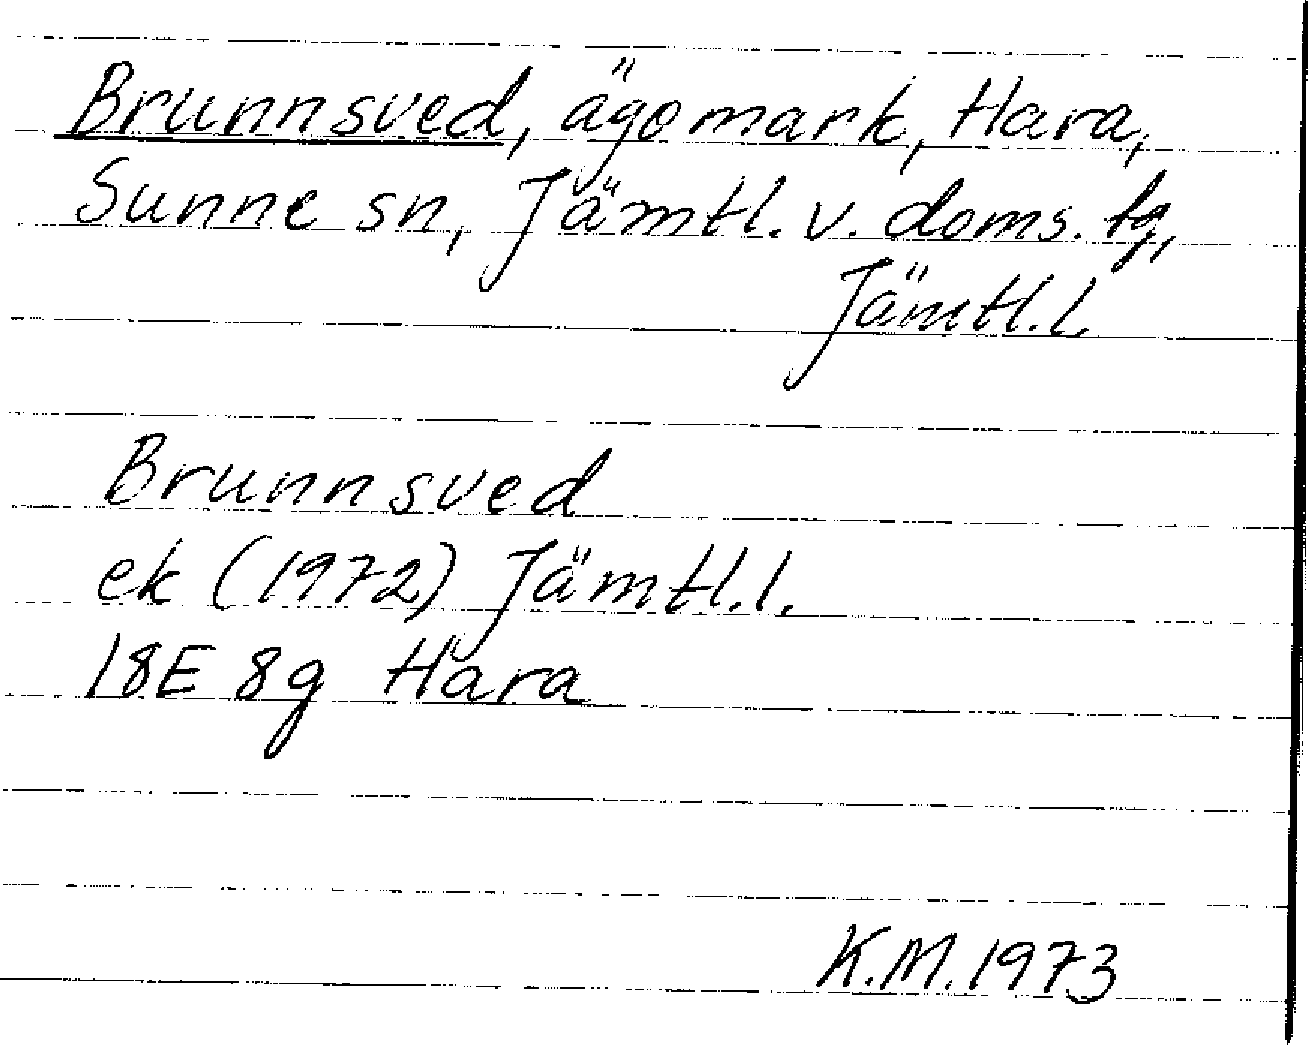 Brunnsved, ägomark, Hara,
Sunne sn, Jämtl. v. doms. tg,
Jämtl.l.
Brunnsved
ek (1972) Jämtl.l.
18E 8g Hara
K.M.1973